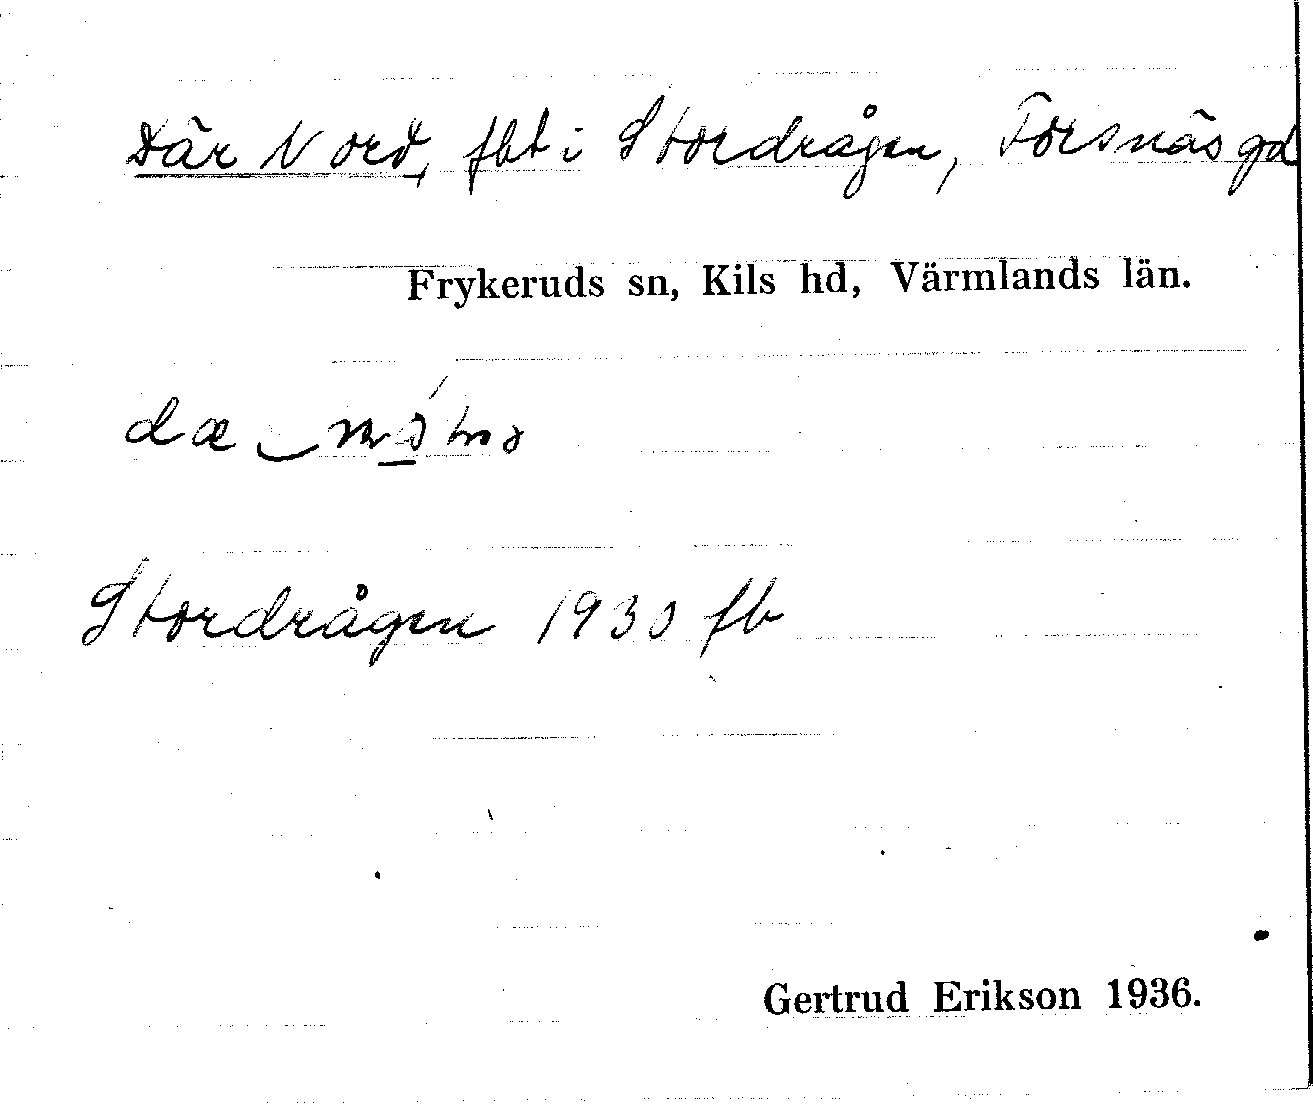 Där Nord, fbt i Stordrågen, Forsnäs gd
Frykeruds sn, Kils hd, Värmlands län.
dæ
Stordrågen 1930 fb
Gertrud Erikson 1936.